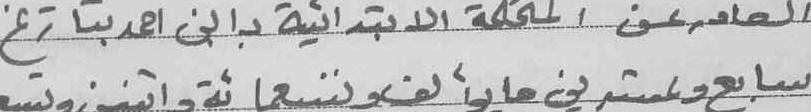 الصادر عن المحكمة الابتدائية بدائن احمد بتاريخ
سابع وعشرين مايو ألف وتسعمائة واثنين وتسع